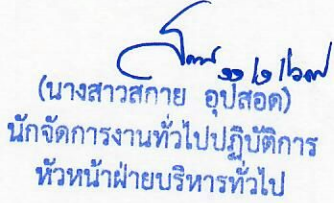 (นางสาวสกาย อุปสอด)
นักจัดการงานทั่วไปปฏิบัติการ
หัวหน้าฝ่ายบริหารทั่วไป